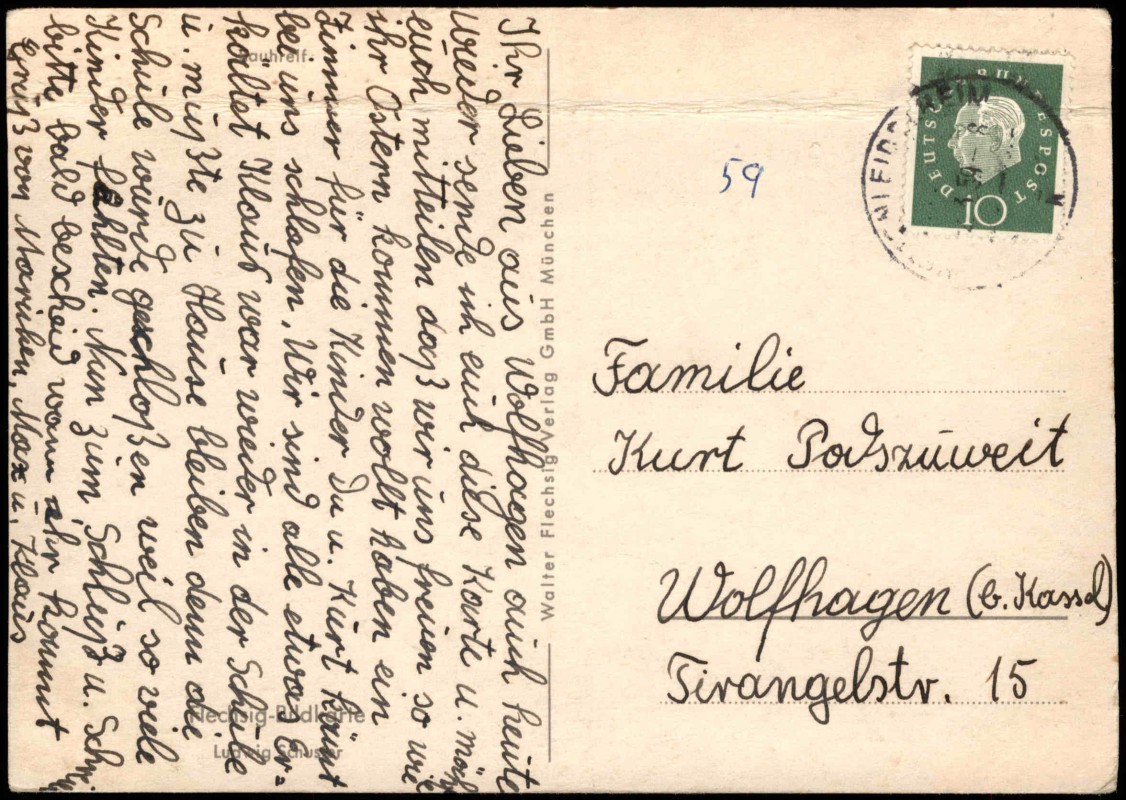 Ihr Lieben aus Wolfhagen auch heute
wieder sende ich euch diese Karte u. möch
euch mitteilen daß wir uns freuen so wie
ihr Ostern kommen wollt haben ein
Zimmer für die Kinder Du u. Kurt könnt
bei uns schlafen. Wir sind alle etwas Er=
kältet Klaus war wieder in der Schule
u. mußte zu Hause bleiben denn die
Schule wurde geschloßen weil so viele
Kinder fehlten. Nun zum Schluß u. Schrei
bitte bald bescheid wann ihr kommt
Gruß von Mariechen, Max u. Klaus
Rauhreif
Flechsig-Bildkarte
Ludwig Schuster
Walter Flechsig Verlag GmbH München
59
DEUTSCHE BUNDESPOST
10
Familie
Kurt Padszuweit
Wolfhagen (b. Kassel)
Tirangelstr. 15